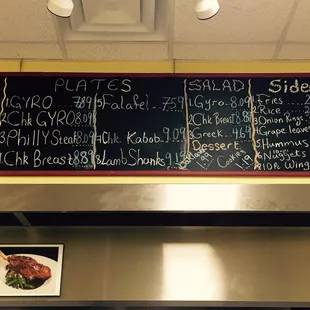 PLATES
1 GYRO 7.89
2 Chk GYRO 8.09
3 Philly Steak 8.09
4 Chk Breast 8.89
5 Falafel 7.59
Chk. Kabob 9.09
Lamb Shanks 9.19
SALAD
1 Gyro 8.09
2 Chk Breast
3 Greek 4.69
Dessert
Cookie
Sides
1 Fries
2 Rice
3 Onion Rings
4 Grape leaves
5 Hummus
6 Nuggets
10 Pc Wings